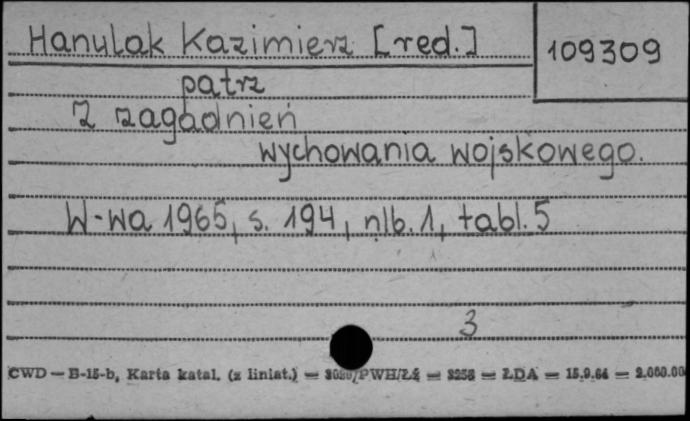 Hanulak Kazimierz [red.]
109309
patrz
Z zagadnień
wychowania wojskowego.
W-wa 1965, s. 194, nlb. 1, tabl. 5
3
CWD — B-15-b, Karta katal. (z liniat.) — /PWH/ZŁ — 3258 — ŁDA — 15.9.64 — 2.000.00